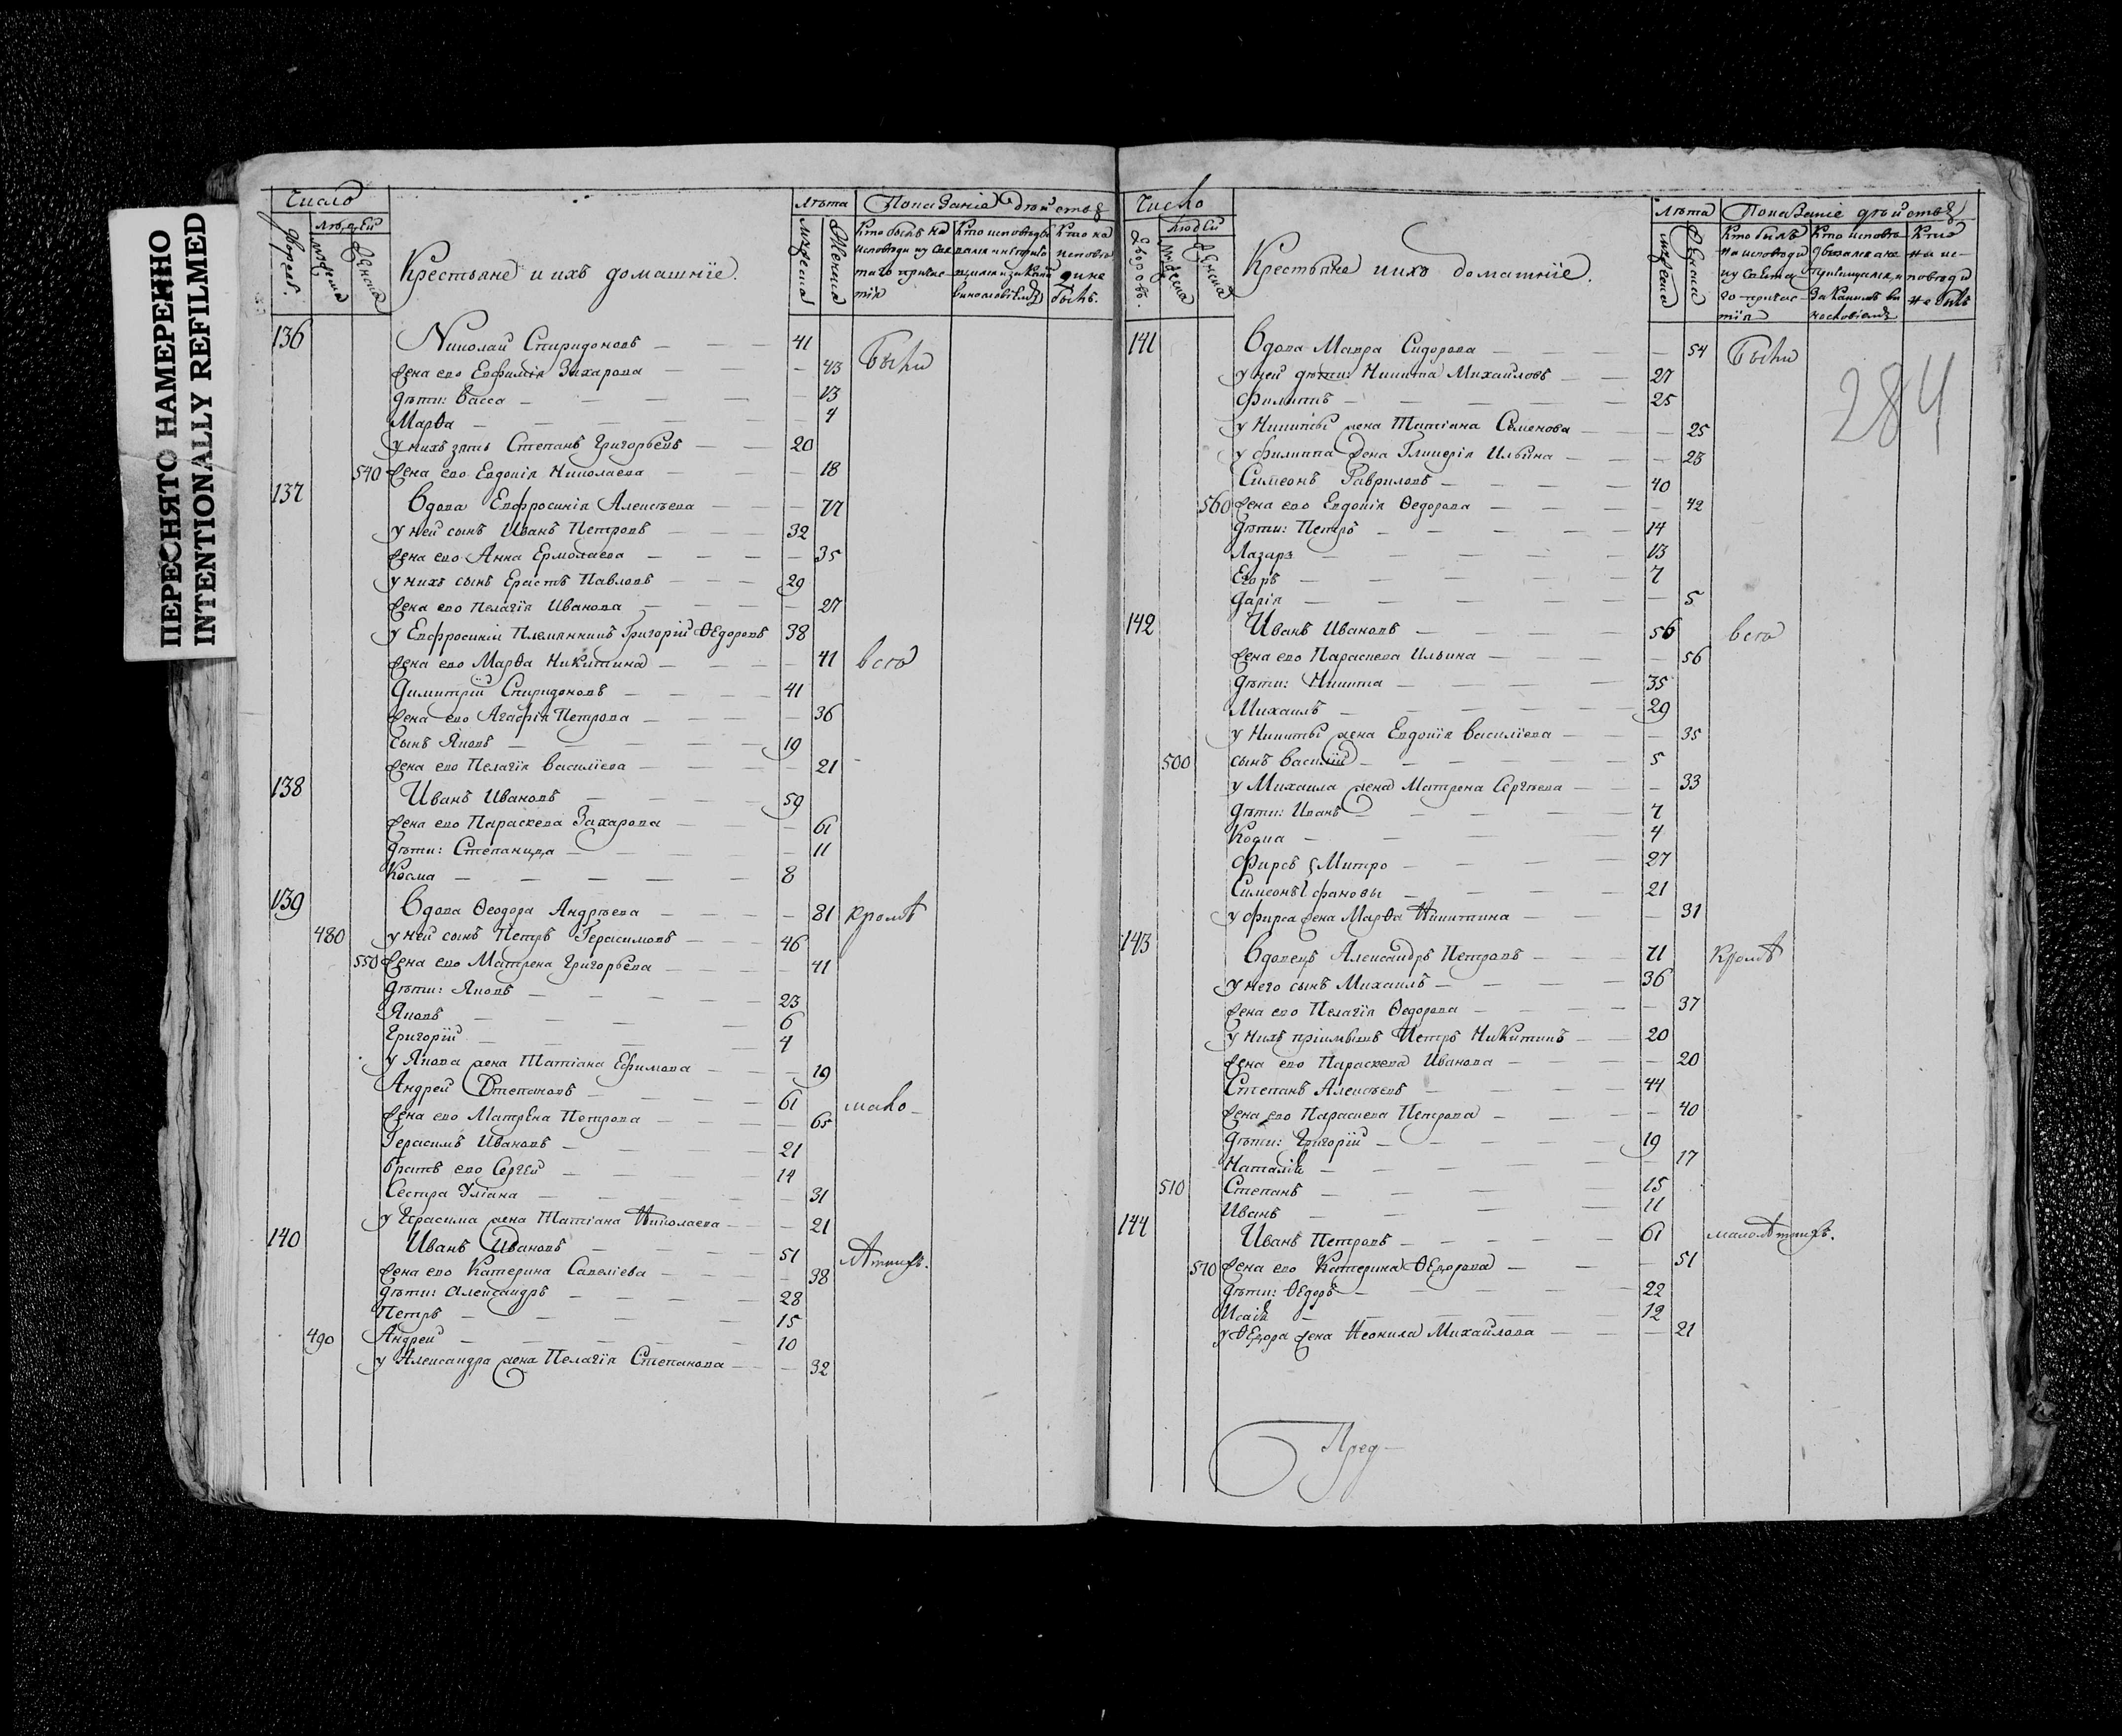 ПЕРЕСНЯТО НАМЕРЕННО
INTENTIONALLY REFILMED
Число
Людей
дворовъ.
мужеска
женска
Крестьяне и ихъ домашнїе.
Лѣта
мужеска
женска
Показанїе дѣйствъ
Кто былъ на исповѣди и у святаго причастїя
Кто исповѣдывался
Кто на исповѣди не былъ.
136 Николай Спиридоновъ — 41
жена ево Евфимїя Захарова — 43 Были
дѣти: Васса — 13
Марѳа — 4
у нихъ зять Степанъ Григорьевъ — 20
540 жена ево Евдокїя Николаева — 18
137 Вдова Евфросинїя Алексѣева — 77
у ней сынъ Иванъ Петровъ — 32
жена ево Анна Ермолаева — 35
у нихъ сынъ Ерастъ Павловъ — 29
жена ево Пелагїя Иванова — 27
у Евфросинїи племянникъ Григорїй Ѳедоровъ 38
жена ево Марѳа Никитина — 41 всѣ
Димитрїй Спиридоновъ — 41
жена ево Агафїя Петрова — 36
сынъ Яковъ — 19
жена ево Пелагїя Василїева — 21
138 Иванъ Ивановъ — 59
жена ево Параскева Захарова — 61
дѣти: Степанида — 11
Косма — 8
139 Вдова Ѳеодора Андрѣева — 81 кромѣ
480 у ней сынъ Петръ Герасимовъ — 46
550 жена ево Матрена Григорьева — 41
дѣти: Яковъ — 23
Яковъ — 6
Григорїй — 4
у Якова жена Татїана Ефимова — 19
Андрей Степановъ — 61 мало-
жена ево Матрена Петрова — 65
Герасимъ Ивановъ — 21
братъ ево Сергей — 14
Сестра Улїана — 31
у Герасима жена Татїана Николаева — 21
140 Иванъ Ивановъ — 51 лѣтнихъ.
жена ево Катерина Савелїева — 38
дѣти: Александръ — 28
Петръ — 15
490 Андрей — 10
у Александра жена Пелагїя Степанова — 32
Число
Людей
дворовъ.
мужеска
женска
Крестьяне и ихъ домашнїе.
Лѣта
мужеска
женска
Показанїе дѣйствъ
Кто былъ на исповѣди и у святаго причастїя
Кто исповѣдывался а не причащался, и за какимъ виновствїемъ
Кто на исповѣди не былъ
284
141 Вдова Мавра Сидорова — 54 Были
у ней дѣти: Никита Михайловъ — 27
Филиппъ — 25
у Никиты жена Татїана Семенова — 25
у Филиппа жена Гликерїя Ильина — 23
Симеонъ Гавриловъ — 40
560 жена ево Евдокїя Ѳедорова — 42
дѣти: Петръ — 14
Лазарь — 13
Егоръ — 7
Дарїя — 5
142 Иванъ Ивановъ — 56 всѣ
жена ево Параскева Ильина — 56
дѣти: Никита — 35
Михаилъ — 29
у Никиты жена Евдокїя Василїева — 35
500 сынъ Василїй — 5
у Михаила жена Матрена Сергѣева — 33
дѣти: Иванъ — 7
Косма — 4
Фирсъ Митро — 27
Симеонъ фановы — 21
у Фирса жена Марѳа Никитина — 31
143 Вдовецъ Александръ Петровъ — 71 Кромѣ
у него сынъ Михаилъ — 36
жена ево Пелагїя Ѳедорова — 37
у нихъ прїимышъ Петръ Никитинъ — 20
жена ево Параскева Иванова — 20
Степанъ Алексѣевъ — 44
жена ево Параскева Петрова — 40
дѣти: Григорїй — 19
Наталїя — 17
510 Степанъ — 15
Иванъ — 11
144 Иванъ Петровъ — 61 малолѣтнихъ.
570 жена ево Катерина Ѳедорова — 51
дѣти: Ѳедоръ — 22
Исаїя — 12
у Ѳедора жена Неонила Михайлова — 21
Пред-